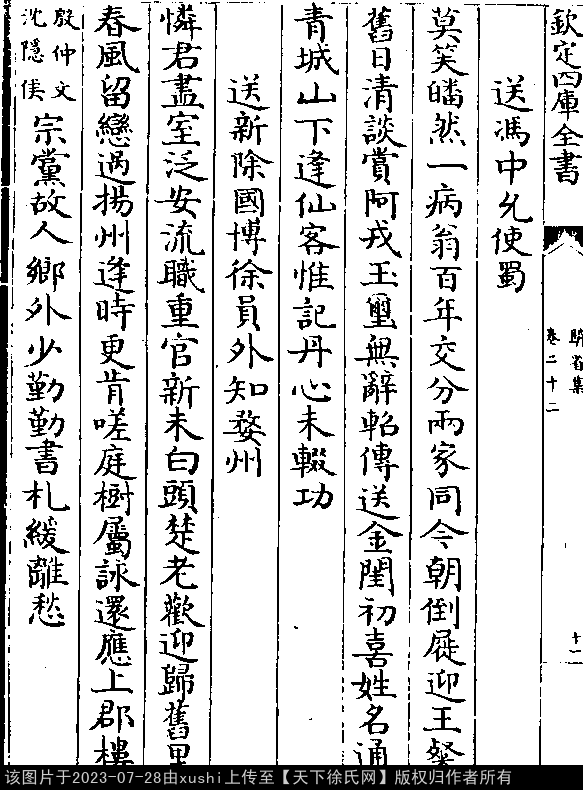 欽定四庫全書
騎省集
卷二十二
十一
送馮中允使蜀
莫笑皤然一病翁百年交分兩家同今朝倒屣迎王粲
舊日清談賞阿戎玉壘無辭軺傳送金閨初喜姓名通
青城山下逢仙客惟記丹心未輟功
送新除國博徐員外知婺州
憐君盡室泛安流職重官新未白頭楚老歡迎歸舊里
春風留戀過揚州逢時更肯嗟庭樹屬詠還應上郡樓
殷仲文
沈隱侯
宗黨故人鄉外少勤勤書札緩離愁
该图片于2023-07-28由xushi上传至【天下徐氏网】版权归作者所有